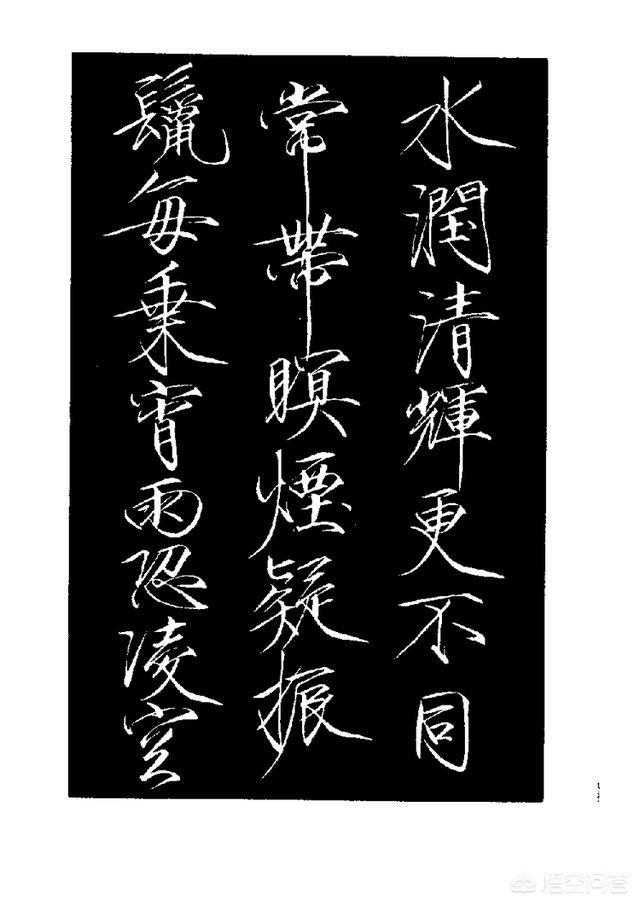 水潤清輝更不同
常帶瞑煙疑振
鬣每乗宵雨恐凌空
悟空问答